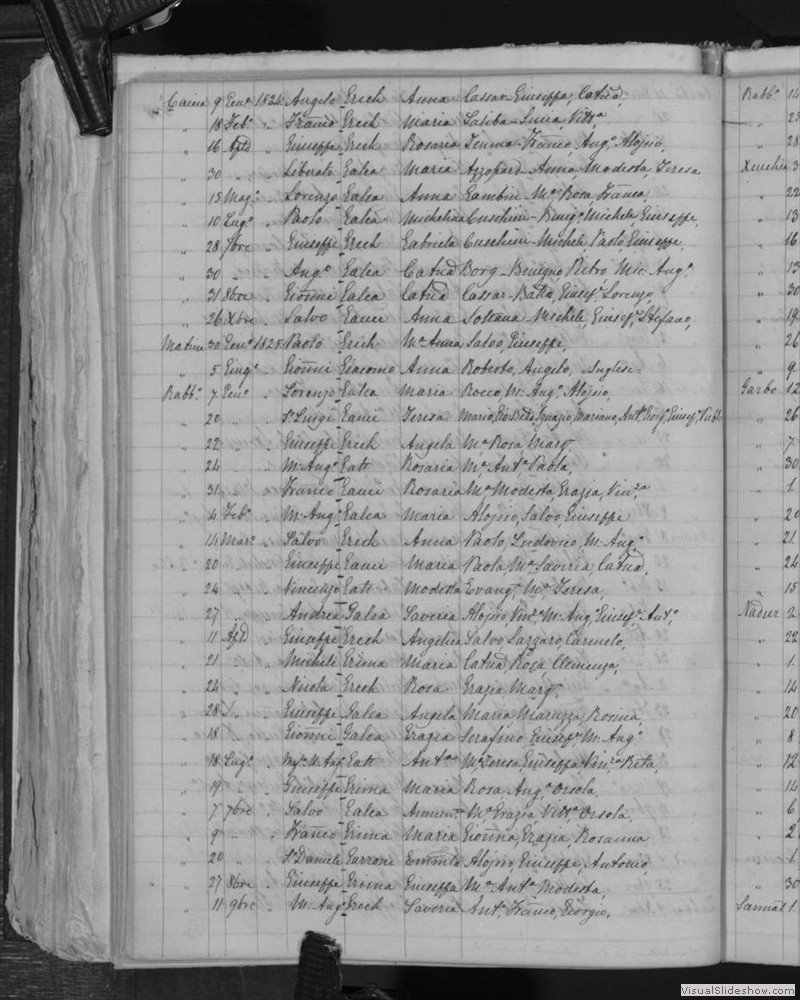 Caccia 9 Genº 1824 Angelo Grech Anna Cassar Giuseppa, Catnā,
" 18 Febº " Franco Grech Maria Saliba Lucia, Vittª
" 16 Aple " Giuseppe Grech Rosaria Franco, Augº, Alojsio,
" 30 " " Liberato Galea Maria Azzopardi Anna, Modesta, Teresa
" 15 Magº " Lorenzo Galea Anna Mª Rosa, Franca
" 10 Lugº " Paolo Galea Michelina Cuschieri Benigº Michele Giuseppe,
" 28 7bre " Giuseppe Grech Gabriela Cuschieri Michele, Paolo, Giuseppe,
" 30 " " Augº Galea Catnā Borg Benigno Pietro Mic. Augº,
" 31 8bre " Gionni Galea Catnā Cassar Batta, Giusefº Lorenzo,
" 26 Xbre " Salvo Gauci Anna Soltana Michele, Giusefº, Stefano,
30 Genº 1825 Paolo Grech Mª Anna Salvo, Giuseppe,
" 5 Giugº " Gionni Giacomo Anna Roberto, Angelo, Inglese
Rabbº 7 Genº " Lorenzo Galea Maria Rocco, M. Augº, Alojsio,
" 20 " " Sr Luigi Gauci Teresa Maria, Ignazio, Mariano, Antº, Giorgº, Giusefº, Publº
" 22 " " Giuseppe Grech Angela Mª Rosa, Margª,
" 24 " " M. Augº Gatt Rosaria Mª Antª Paola,
" 31 " " Franco Gauci Rosaria Mª Modesta, Grazia, Vinzª
" 4 Febº " M. Augº Galea Maria Alojsio, Salvo, Giuseppe
" 14 Marº " Salvo Grech Anna Paolo, Lodovico, M. Augº,
" 20 " " Giuseppe Gauci Maria Paola Mª Saveria, Catnā,
" 24 " " Vincenzo Gatt Modesta Evangª, Mª Teresa,
" 27 " " Andrea Galea Saveria Alojsio, Vinzº M. Augº, Giusefº, Antº,
" 11 Aple " Giuseppe Grech Angelica Salvo, Lazzaro, Carmelo,
" 21 " " Michele Grima Maria Catnā, Rosa, Clemenza,
" 24 " " Nicola Grech Rosa Grazia Margª,
" 28 " " Giuseppe Galea Angela Maria, Maruzza, Rosina,
" 18 " " Gionni Galea Grazia Serafino, Giusefº M. Augº
" 18 Lugº " M. Augº Gatt Antª Mª Teresa, Giuseppa, Vinzª, Rita,
" 19 " " Giuseppe Grima Maria Rosa, Augª, Orsola,
" 7 7bre " Salvo Galea Annunª Mª Grazia, Vittª, Orsola,
" 9 " " Franco Grima Maria Gionna, Grazia, Rosanna
" 20 " " Sr Daniele Alojsio, Giuseppe, Antonio,
" 27 8bre " Giuseppe Grima Giuseppa Mª Antª Modesta,
" 11 9bre " M. Augº Grech Saveria Antº, Franco, Giorgio,
Rabbº 14
" 25
" 28
Xeuchia 3
" 22
" 13
" 16
" 13
" 30
" 19
" 26
" 9
Garbo 12
" 26
" 7
" 30
" 1
" 20
" 21
" 24
" 15
Nadur 2
" 22
" 1
" 14
" 20
" 8
" 12
" 14
" 6
" 2
" 1
" 30
Sannat 1
VisualSlideshow.com